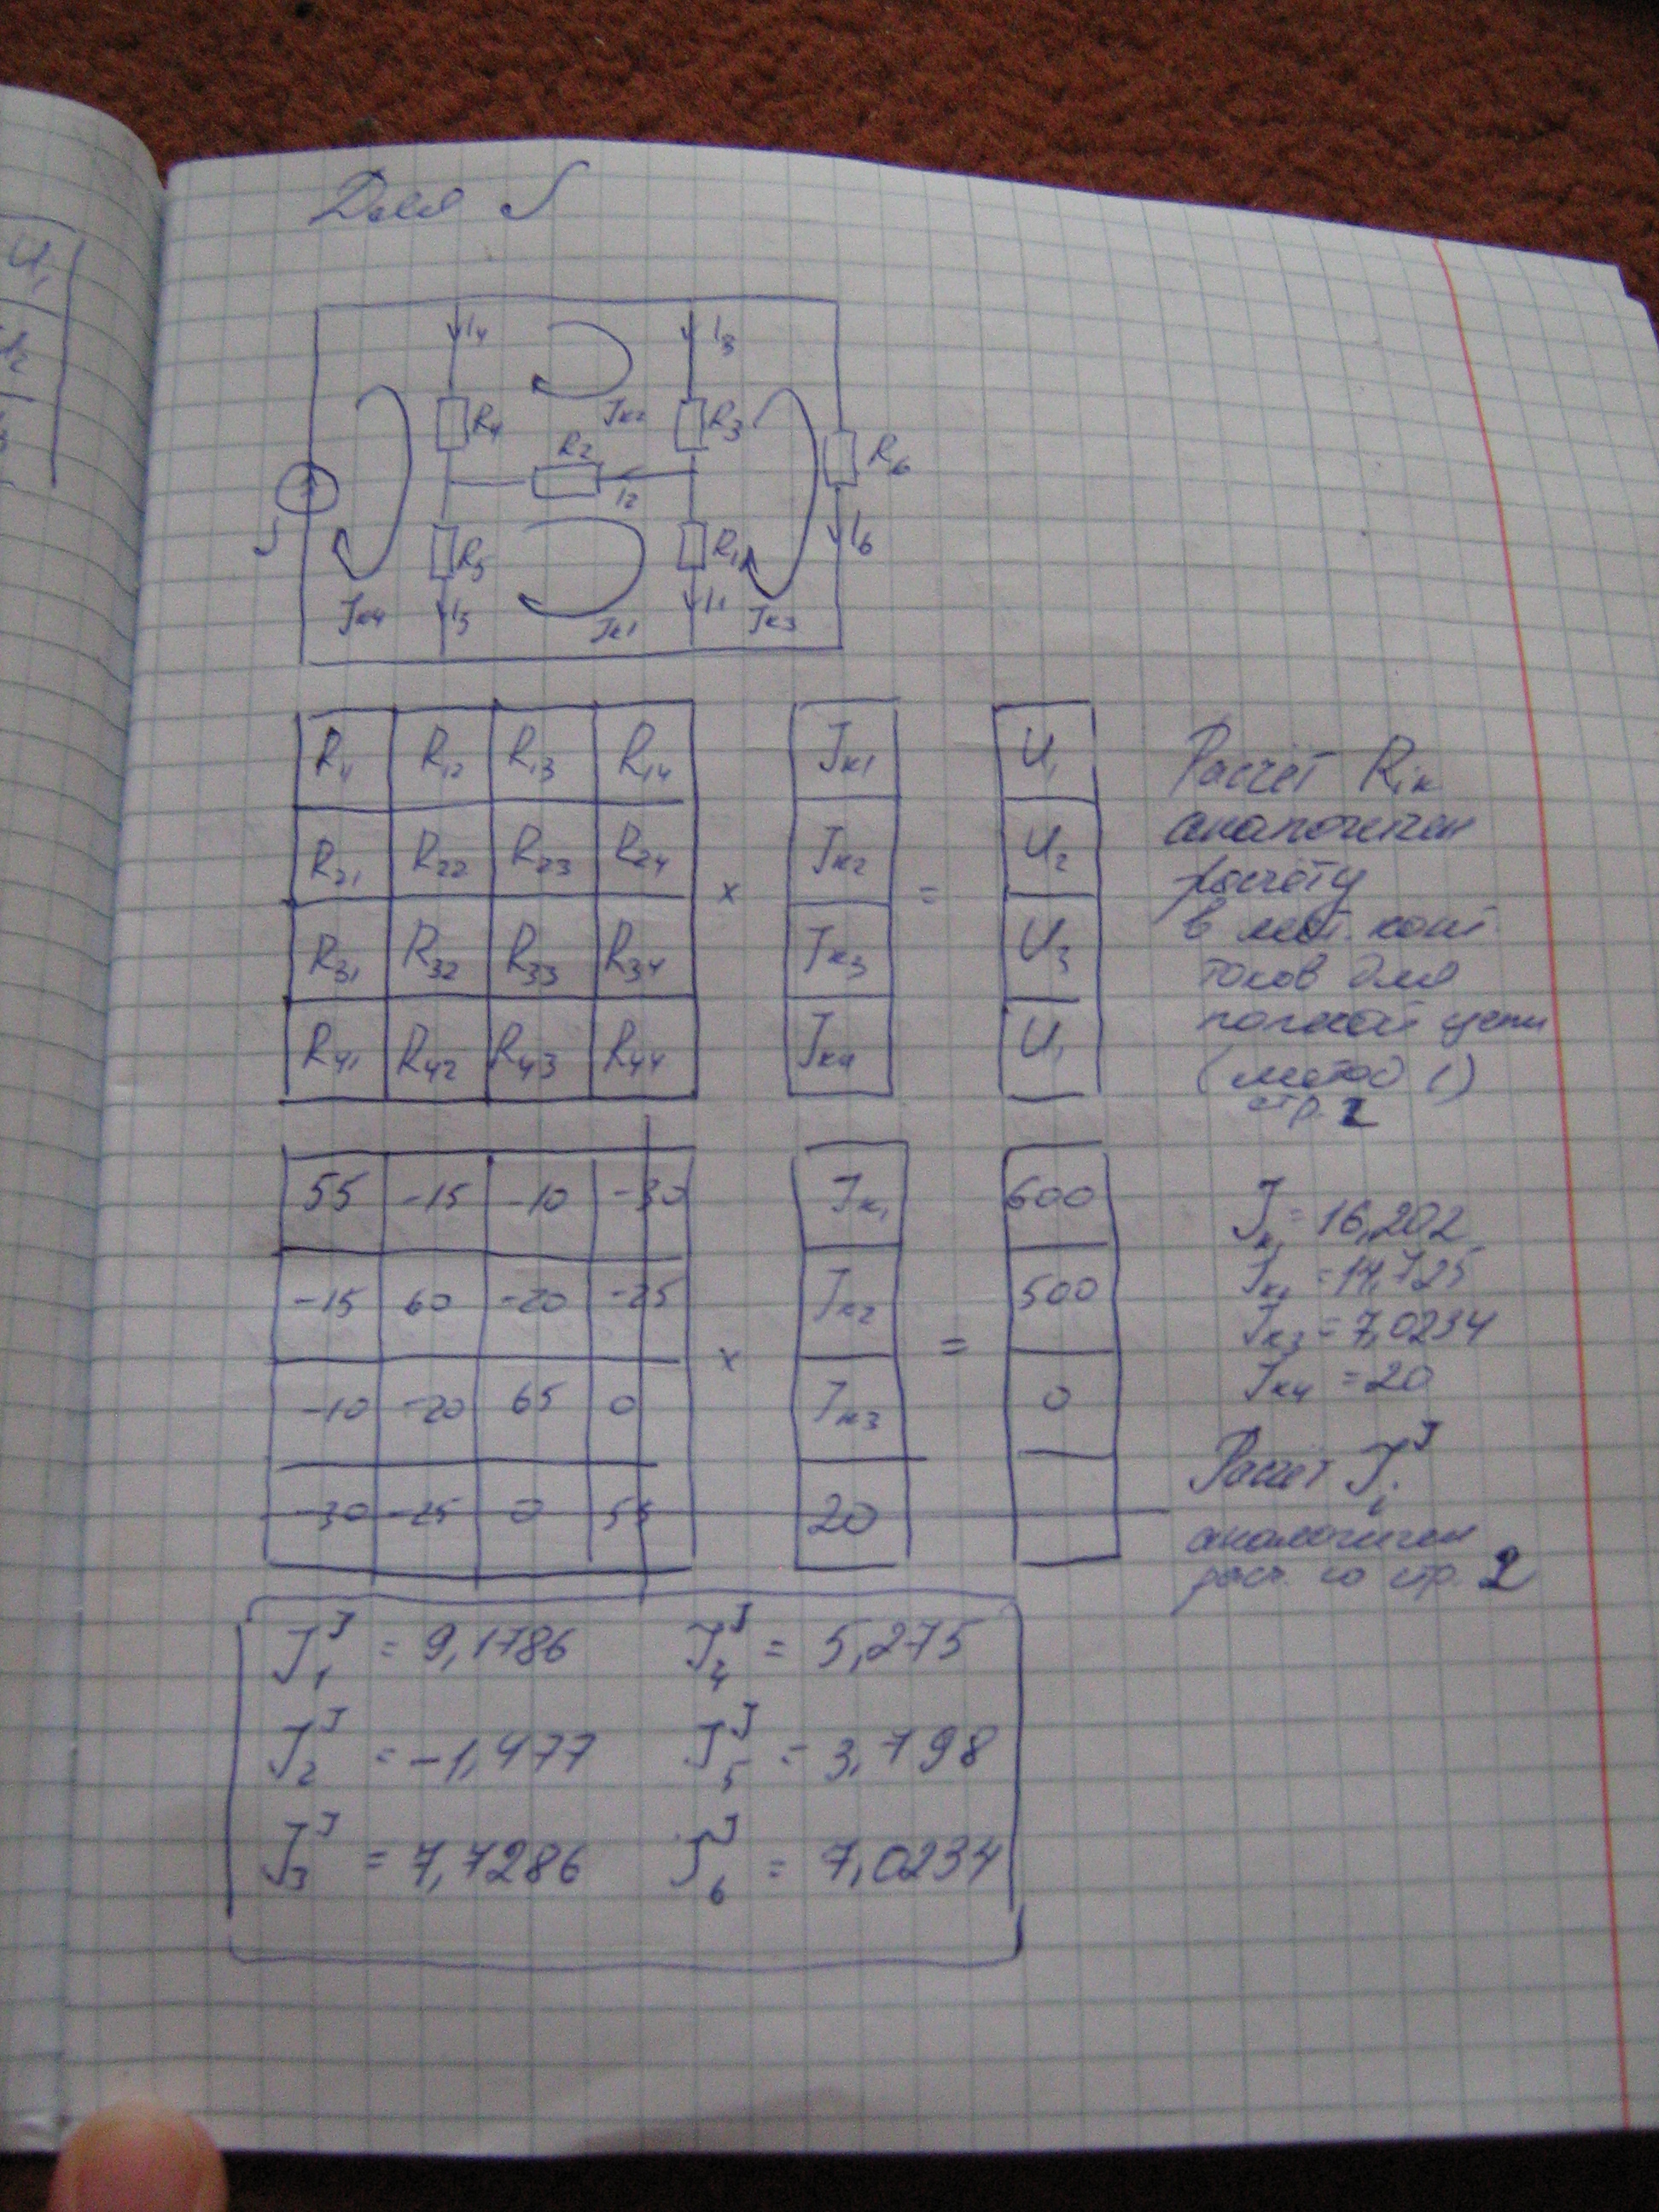 Для J
I4
I3
Iк2
R4
R3
R2
R6
I2
J
R5
R1
I6
Iк4
I5
Iк1
I1
Iк3
R11 R12 R13 R14
R21 R22 R23 R24
R31 R32 R33 R34
R41 R42 R43 R44
×
Iк1
Iк2
Iк3
Iк4
=
U1
U2
U3
U1
Расчёт Rik
аналогичен
расчёту
в мет. конт.
токов для
полной цепи
(метод 1)
стр. 2
55 -15 -10 -30
-15 60 -20 -25
-10 -20 65 0
-30 -25 0 55
×
Iк1
Iк2
Iк3
20
=
600
500
0
Iк1 = 16,202
Iк2 = 14,725
Iк3 = 7,0234
Iк4 = 20
Расчет IiJ
аналогичен
расч. со стр. 2
I1J = 9,1786 I4J = 5,275
I2J = -1,477 I5J = 3,798
I3J = 7,7286 I6J = 7,0234
U1